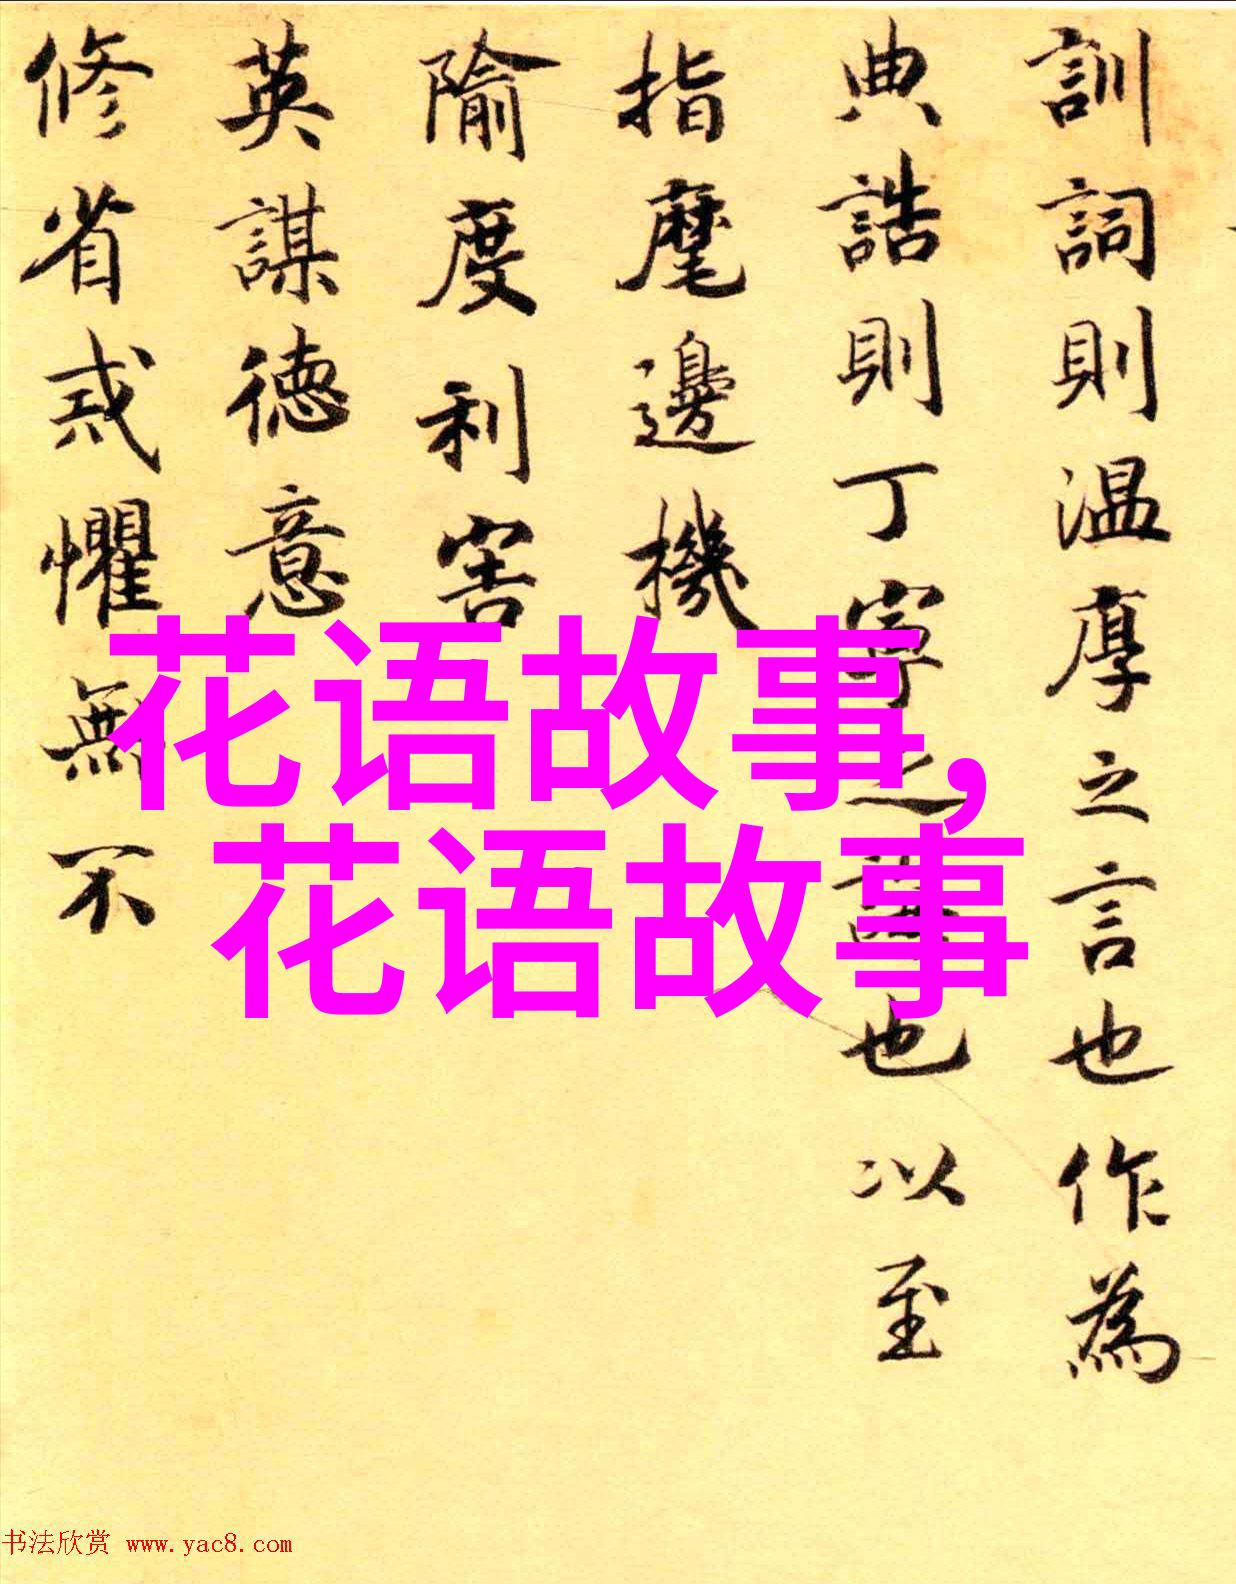 訓詞則温厚之言也作為
典誥則丁寧之 也以至
指麾邊機
隃度利害
英謀德意
修省戒懼無不
花语故事,
花语故事
书法欣赏 www.yac8.com